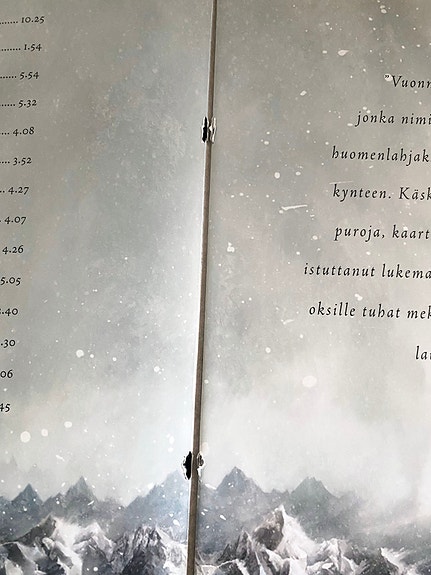 ........ 10.25
....... 1.54
...... 5.54
...... 5.32
.... 4.08
.... 3.52
... 4.27
.. 4.07
.. 4.26
5.05
.40
.30
06
45
"Vuonn
jonka nimi
huomenlahjak
kynteen. Käsk
puroja, kaart
istuttanut lukema
oksille tuhat mek
lau